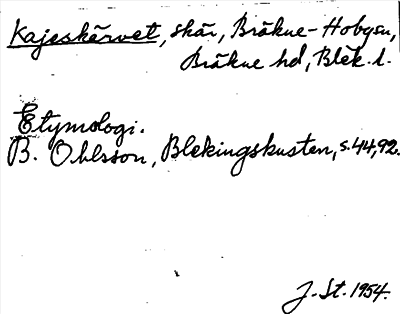 Kajeskärvet, skär, Bräkne-Hobysn,
Bräkne hd, Blek. l.
Etymologi.
B. Ohlsson, Blekingskusten, s. 44, 92.
J. St. 1954.